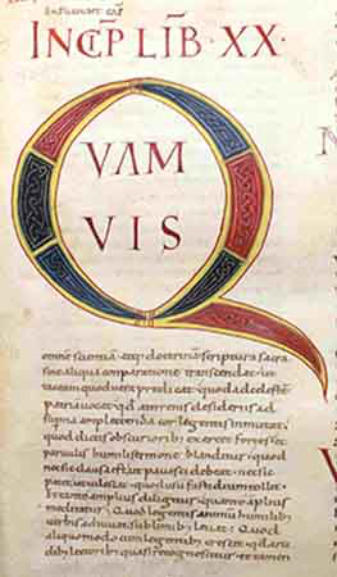 INCIP LIB · XX ·
QVAM
VIS
omne scientiā atq; doctrinā scriptura sacra
sine aliqua comparatione transcendat · ut
taceam quod vera predicat · quod ad celestē
patria vocat · qd a terrenis desideriis ad
superna amplectenda cor legentis inmutat ·
quod dictis obscuriorib; exercet fortes et
parvulis humili sermone blanditur · quod
nec sic clausa est ut pavesci debeat · nec sic
patet ut vilescat · quod usu fastidium tollit ·
& tanto amplius diligitur · quanto amplius
meditatur · Quod legentis animū humilib;
verbis adiuvat sublimib; levat · Quod
aliquo modo cum legentib; crescit · qd a ru
dib; lectorib; quasi recognoscitur · et tamen